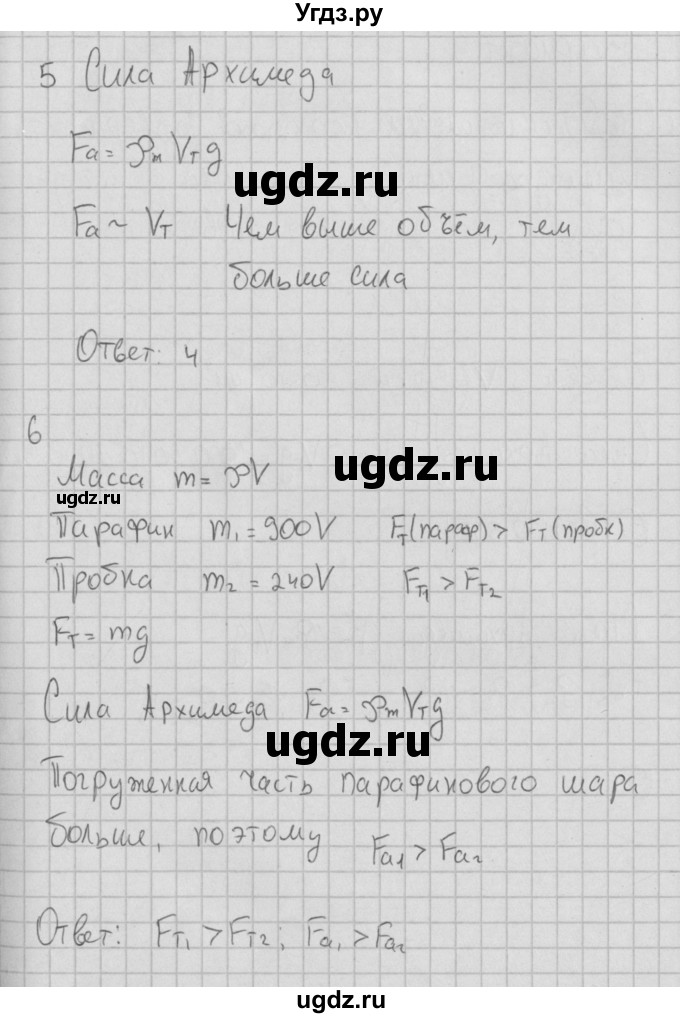 Угдз.ру
5 Сила Архимеда
Fа = ρт Vт g
ugdz.ru
Fа ~ Vт Чем выше объём, тем
больше сила
Ответ: 4
6
ugdz.ru
Масса m = ρV
ugdz.ru
Парафин m₁ = 900V Fт(параф) > Fт(пробк)
Пробка m₂ = 240V Fт₁ > Fт₂
Fт = mg
Сила Архимеда Fа = ρт Vт g
ugdz.ru
Погруженная часть парафинового шара
больше, поэтому Fа₁ > Fа₂
Ответ: Fт₁ > Fт₂; Fа₁ > Fа₂
ugdz.ru